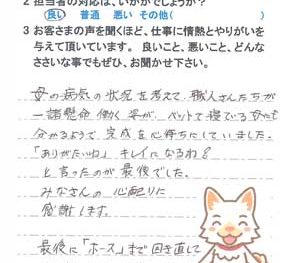 2 担当者の対応は、いかがでしょうか？
良い 普通 悪い その他( )
3 お客さまの声を聞くほど、仕事に情熱とやりがいを
与えて頂いています。 良いこと、悪いこと、どんな
ささいな事でもぜひ、お聞かせ下さい。
母の病気の状況を考えて、職人さんたちが
一諸懸命 働く姿が、ベットで寝ている母にも
分かるようで、完成を心待ちにしていました。
「ありがたいね」キレイになるわ？
と言ったのが最後でした。
みなさんの 心配りに
感謝します。
最後に「ホース」まで 回き直して